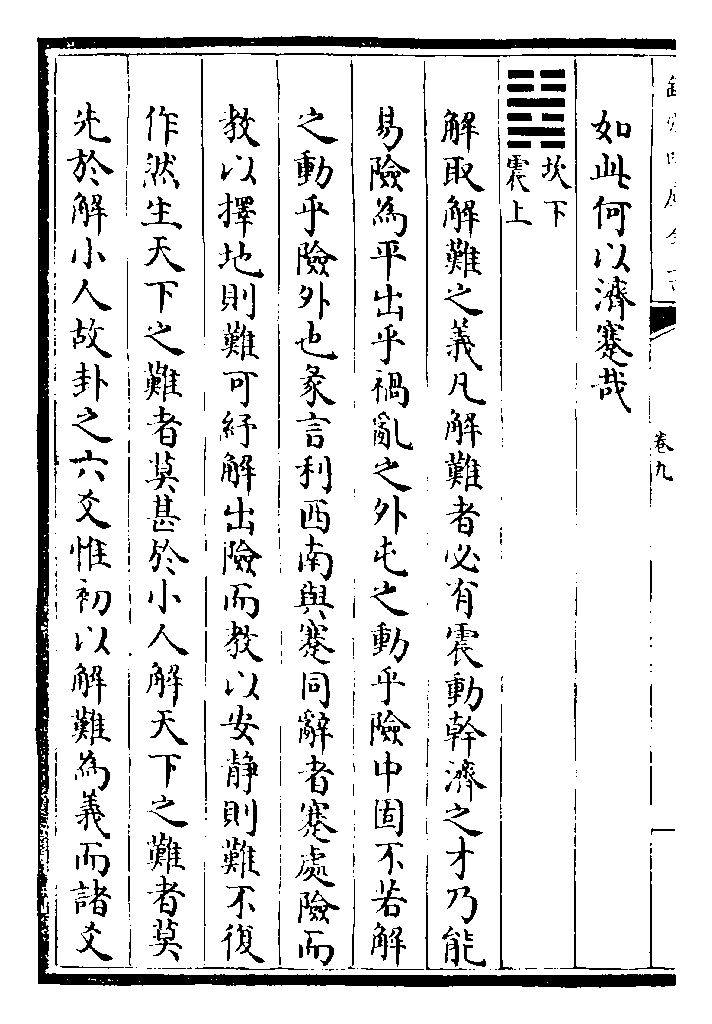 如此何以濟蹇哉
䷧坎下
震上
解取解難之義凡解難者必有震動幹濟之才乃能
易險為平出乎禍亂之外屯之動乎險中固不若解
之動乎險外也彖言利西南與蹇同辭者蹇處險而
教以擇地則難可紓解出險而教以安静則難不復
作然生天下之難者莫甚於小人解天下之難者莫
先於解小人故卦之六爻惟初以解難為義而諸爻
卷九